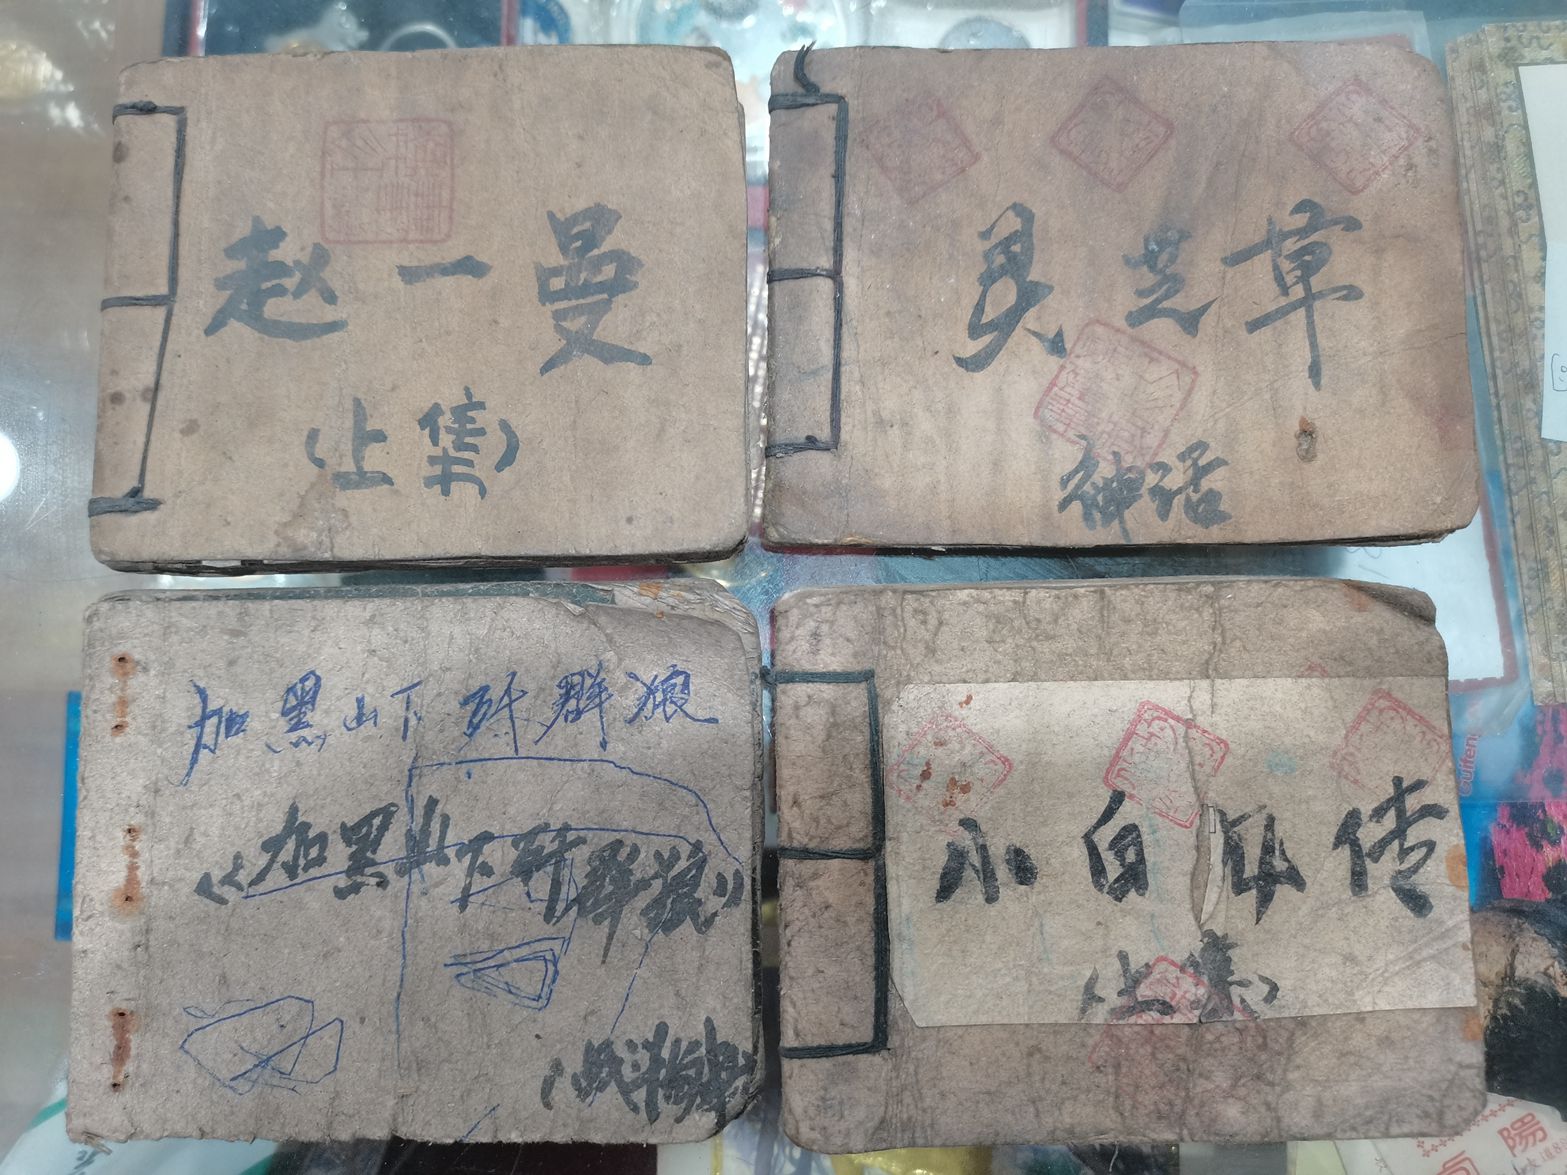 赵一曼
(上集)
灵芝草
神话
加黑山下歼群狼
《加黑山下歼群狼》
小白龙传
(上集)
陽